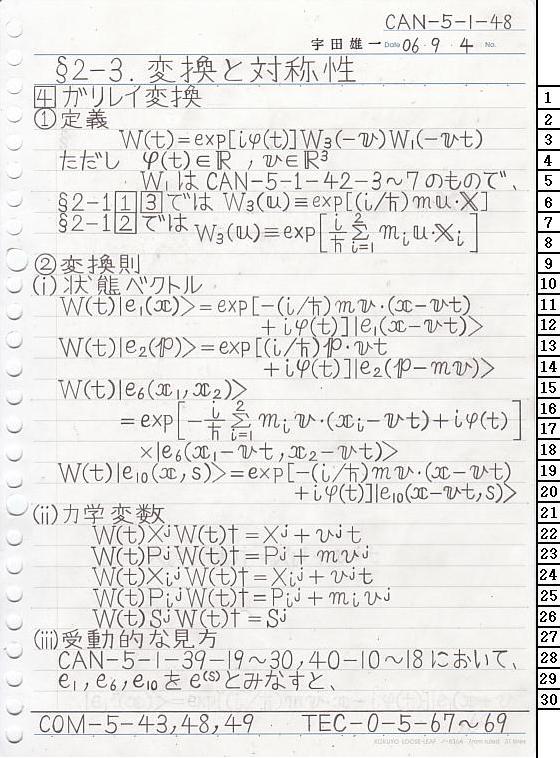 CAN-5-1-48
宇田雄一 Date 06・9・4 No.
§2-3. 変換と対称性
4 ガリレイ変換
① 定義
W(t)=exp[iφ(t)]W₃(-v)W₁(-vt)
ただし φ(t)∈ℝ , v∈ℝ³
W₁ は CAN-5-1-42-3~7 のもので、
§2-1 1 3 では W₃(u)≡exp[(i/ħ)mu・X]
§2-1 2 では W₃(u)≡exp[i/ħ Σ²ᵢ₌₁ mᵢu・Xᵢ]
② 変換則
(i) 状態ベクトル
W(t)|e₁(x)>=exp[-(i/ħ)mv・(x-vt)
+iφ(t)]|e₁(x-vt)>
W(t)|e₂(p)>=exp[(i/ħ)p・vt
+iφ(t)]|e₂(p-mv)>
W(t)|e₆(x₁,x₂)>
=exp[-i/ħ Σ²ᵢ₌₁ mᵢv・(xᵢ-vt)+iφ(t)]
×|e₆(x₁-vt,x₂-vt)>
W(t)|e₁₀(x,s)>=exp[-(i/ħ)mv・(x-vt)
+iφ(t)]|e₁₀(x-vt,s)>
(ii) 力学変数
W(t)XʲW(t)†=Xʲ+vʲt
W(t)PʲW(t)†=Pʲ+mvʲ
W(t)XᵢʲW(t)†=Xᵢʲ+vʲt
W(t)PᵢʲW(t)†=Pᵢʲ+mᵢvʲ
W(t)SʲW(t)†=Sʲ
(iii) 受動的な見方
CAN-5-1-39-19~30,40-10~18 において、
e₁,e₆,e₁₀を e⁽ˢ⁾とみなすと、
COM-5-43,48,49 TEC-0-5-67~69
1
2
3
4
5
6
7
8
9
10
11
12
13
14
15
16
17
18
19
20
21
22
23
24
25
26
27
28
29
30